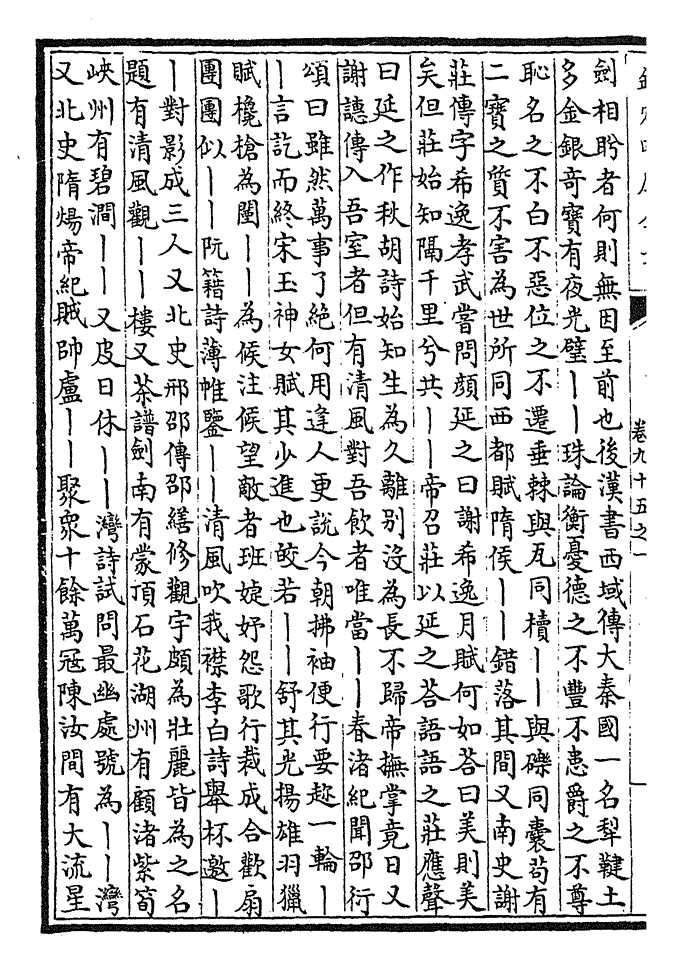 卷九十五之一
劍相眄者何則無因至前也後漢書西域傳大秦國一名犁鞬土
多金銀奇寶有夜光璧丨丨珠論衡憂德之不豐不患爵之不尊
恥名之不白不惡位之不遷垂棘與瓦同櫝丨丨與礫同囊茍有
二寶之質不害為世所同西都賦隋侯丨丨錯落其間又南史謝
莊傳字希逸孝武嘗問顔延之曰謝希逸月賦何如荅曰美則美
矣但莊始知隔千里兮共丨丨帝召莊以延之荅語語之莊應聲
曰延之作秋胡詩始知生為久離别沒為長不歸帝撫掌竟日又
謝譓傳入吾室者但有清風對吾飲者唯當丨丨春渚紀聞邵衍
頌曰雖然萬事了絶何用逢人更說今朝拂袖便行要趂一輪丨
丨言訖而終宋玉神女賦其少進也皎若丨丨舒其光揚雄羽獵
賦欃槍為闉丨丨為候注候望敵者班婕妤怨歌行裁成合歡扇
團團似丨丨阮籍詩薄帷鑒丨丨清風吹我襟李白詩舉杯邀丨
丨對影成三人又北史邢邵傳邵繕修觀宇頗為壯麗皆為之名
題有清風觀丨丨樓又茶譜劍南有蒙頂石花湖州有顧渚紫筍
峽州有碧澗丨丨又皮日休丨丨灣詩試問最幽處號為丨丨灣
又北史隋煬帝紀賊帥盧丨丨聚衆十餘萬冦陳汝間有大流星